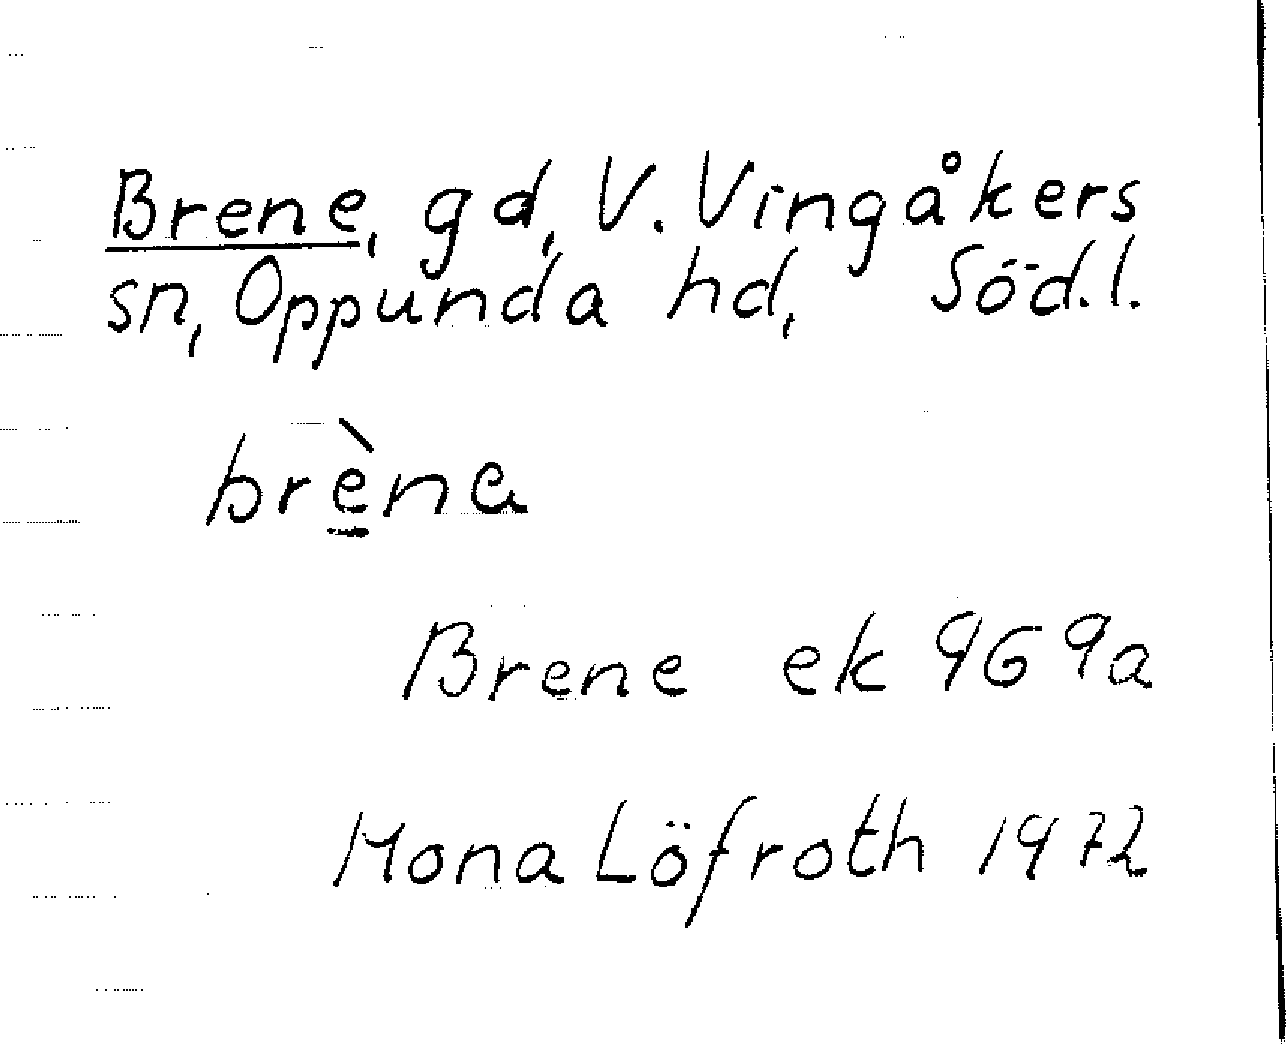 Brene, gd, V. Vingåkers
sn, Oppunda hd, Söd.l.
brèna
Brene ek 969a
Mona Löfroth 1972